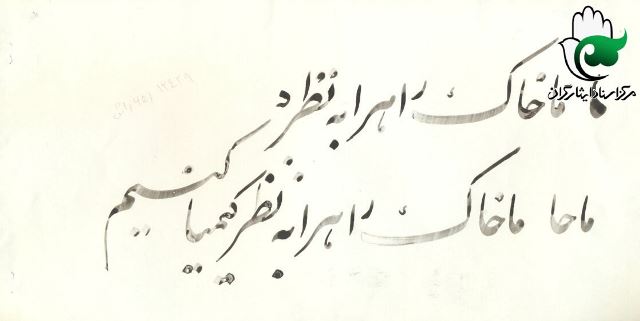 مرکز اسناد ایثارگران
ما خاک راهرا به نظر د
ما حا ما خاک راهرا به نظر کیمیا کنیم